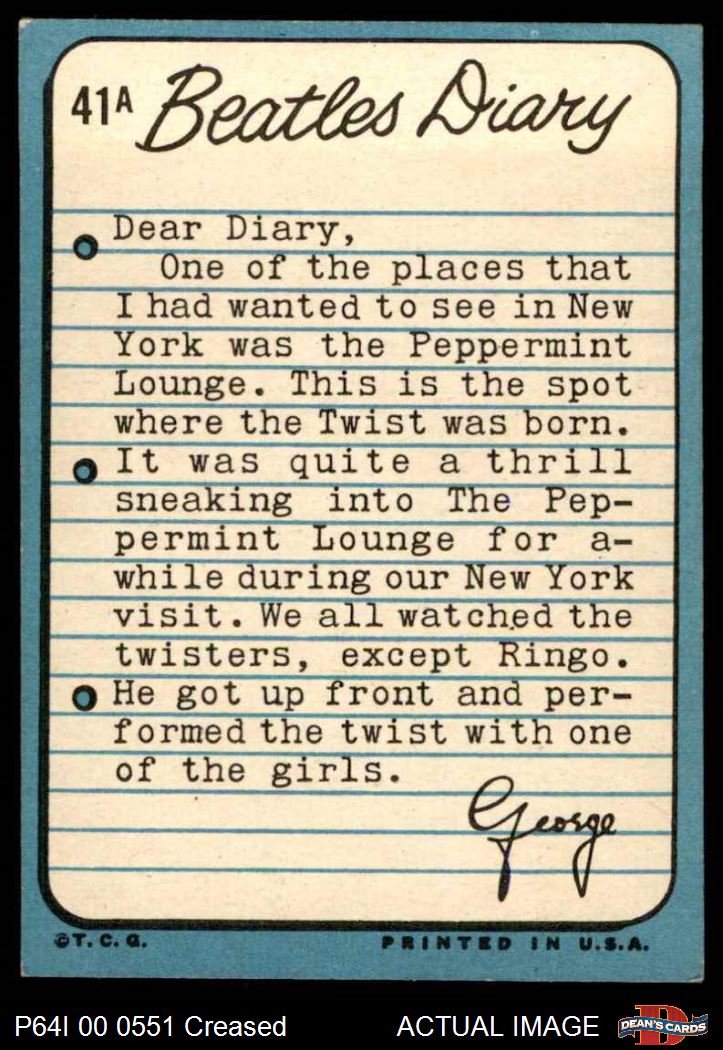 41A Beatles Diary
Dear Diary,
One of the places that
I had wanted to see in New
York was the Peppermint
Lounge. This is the spot
where the Twist was born.
It was quite a thrill
sneaking into The Pep-
permint Lounge for a-
while during our New York
visit. We all watched the
twisters, except Ringo.
He got up front and per-
formed the twist with one
of the girls.
George
©T.C.G. PRINTED IN U.S.A.
P64I 00 0551 Creased ACTUAL IMAGE DEAN'S CARDS